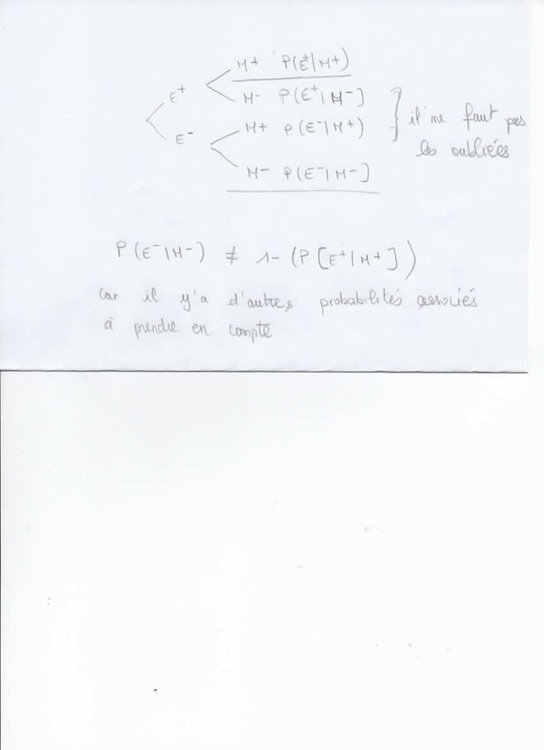 M+ P(E+|M+)
E+
M- P(E+|M-]
M+ P(E-|M+)
E-
M- P(E-|M-]
il ne faut pas
les oubliées
P(E-|M-) ≠ 1-(P[E+|M+])
car il y'a d'autres probabilités associés
à prendre en compte